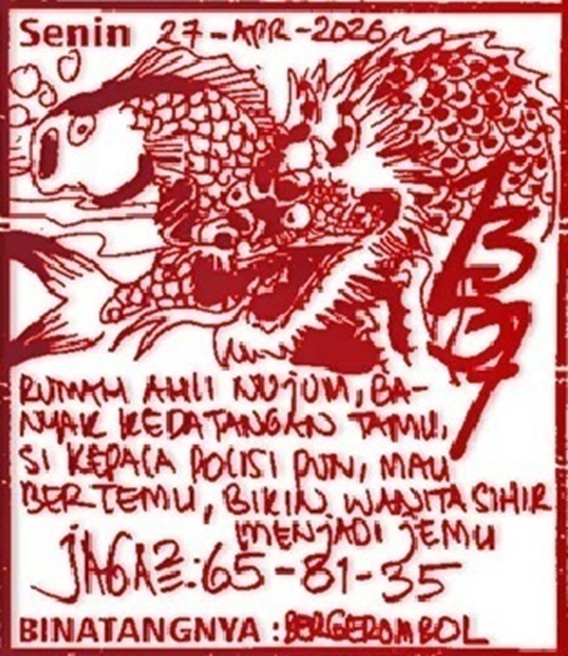 Senin 27-APR-2026
RUMAH AHLI NUJUM, BA-
NYAK KEDATANGAN TAMU,
SI KEPALA POLISI PUN, MAU
BERTEMU, BIKIN WANITA SIHIR
MENJADI JEMU
JAGA2:65-81-35
BINATANGNYA :BERGEROMBOL